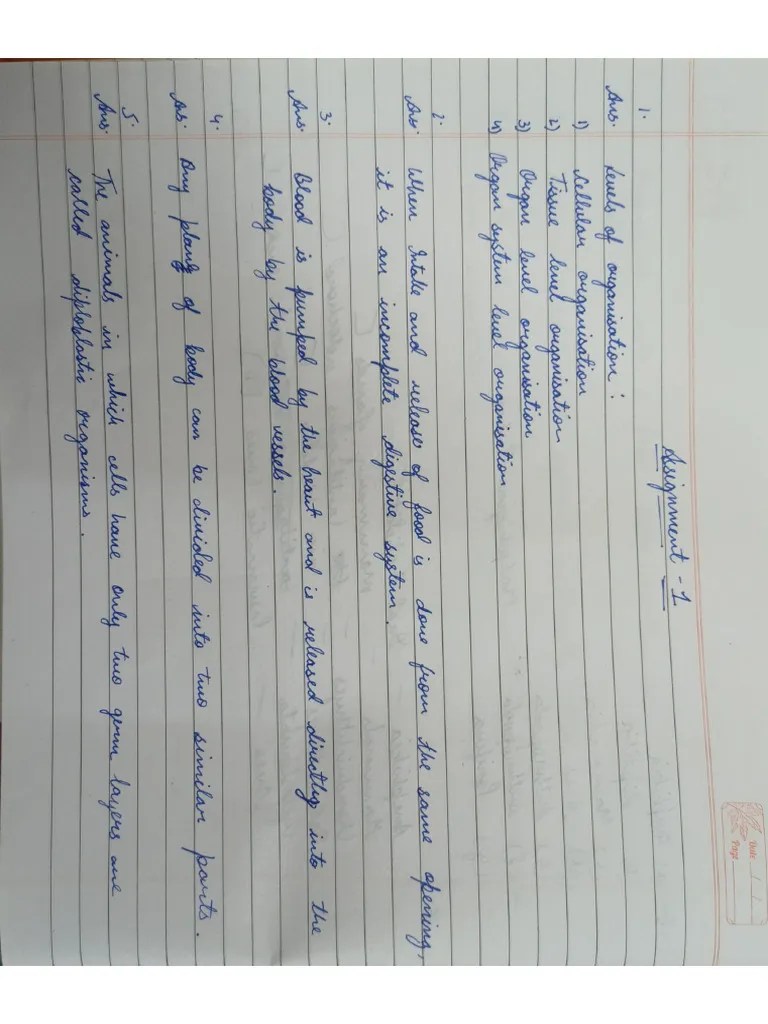 Date / /
Page
Assignment - 1
1.
Ans. Levels of organisation :
1) Cellular organisation
2) Tissue level organisation
3) Organ level organisation
4) Organ system level organisation
2.
Ans. When Intake and release of food is done from the same opening,
it is an incomplete digestive system.
3.
Ans. Blood is pumped by the heart and is released directly into the
body by the blood vessels.
4.
Ans. Any plang of body can be divided into two similar parts.
5.
Ans. The animals in which cells have only two germ layers are
called diploblastic organisms.